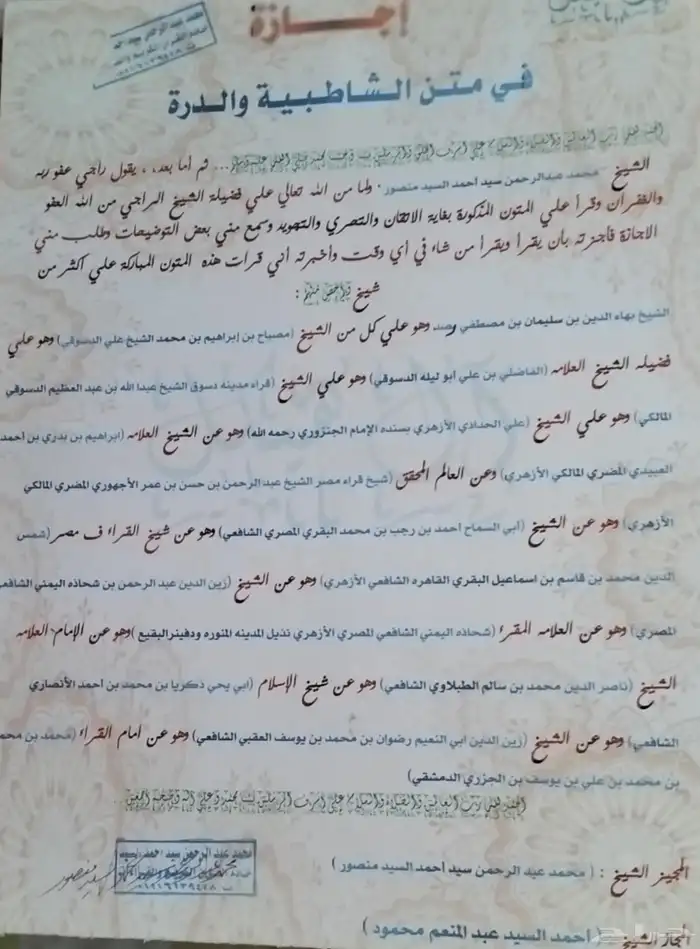 إجازة
في متن الشاطبية والدرة
الحمد لله رب العالمين والصلاة والسلام علي أشرف
الشيخ محمد عبدالرحمن سيد أحمد السيد منصور. ولما من الله تعالي علي فضيلة الشيخ الراجي من الله العفو ... ثم أما بعد، ، يقول راجي عفو ربه
والغفران وقرأ علي المتون المذكورة بغاية الاتقان والتحري والتجويد وسمع مني بعض التوضيحات وطلب مني
الاجازة فأجزته بأن يقرأ ويقرأ من شاء في أي وقت وأخبرته أني قرات هذه المتون المباركة علي أكثر من
شيخ وأخص منهم :
الشيخ بهاء الدين بن سليمان بن مصطفي وصد وهو علي كل من الشيخ (مصباح بن إبراهيم بن محمد الشيخ علي الدسوقي) وهو علي
فضيله الشيخ العلامه (الفاضلي بن علي ابو ليله الدسوقي) وهو علي الشيخ (قراء مدينه دسوق الشيخ عبدا الله بن عبد العظيم الدسوقي
المالكي) وهو علي الشيخ (علي الحدادي الأزهري بسنده الإمام الجنزوري رحمه الله) وهو عن الشيخ العلامه (ابراهيم بن بدري بن احمد
العبيدي المضري المالكي الأزهري) وعن العالم المحقق (شيخ قراء مصر الشيخ عبد الرحمن بن حسن بن عمر الأجهوري المضري المالكي
الأزهري) وهو عن الشيخ (أبي السماح احمد بن رجب بن محمد البقري المصري الشافعي) وهو عن شيخ القراء ف مصر (شمس
الدين محمد بن قاسم بن اسماعيل البقري القاهره الشافعي الأزهري) وهو عن الشيخ (زين الدين عبد الرحمن بن شحاذه اليمني الشافعي
المصري) وهو عن العلامه المقرء (شحاذه اليمني الشافعي المصري الأزهري نذيل المدينه المنوره ودفينرالبقيع )وهو عن الإمام العلامه
الشيخ (ناصر الدين محمد بن سالم الطبلاوي الشافعي) وهو عن شيخ الإسلام (ابي يحي ذكريا بن محمد بن احمد الأنصاري
الشافعي) وهو عن الشيخ (زين الدين ابي النعيم رضوان بن محمد بن يوسف العقبي الشافعي) وهو عن امام القراء (محمد بن محمد
بن محمد بن علي بن يوسف بن الجزري الدمشقي)
الحمد لله رب العالمين والصلاة والسلام علي أشرف المرسلين سيدنا محمد وعلي آله وصحبه أجمعين..
محمد عبد الرحمن سيد احمد السيد
المجيز الشيخ : ( محمد عبد الرحمن سيد أحمد السيد منصور )
المجاز الشيخ ( احمد السيد عبد المنعم محمود )